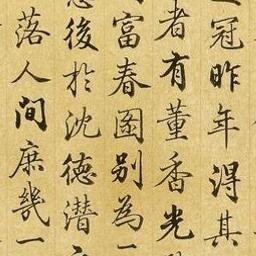 冠昨年得其
者有董香光
富春圖别為一
後於沈德潜
落人間庶幾一